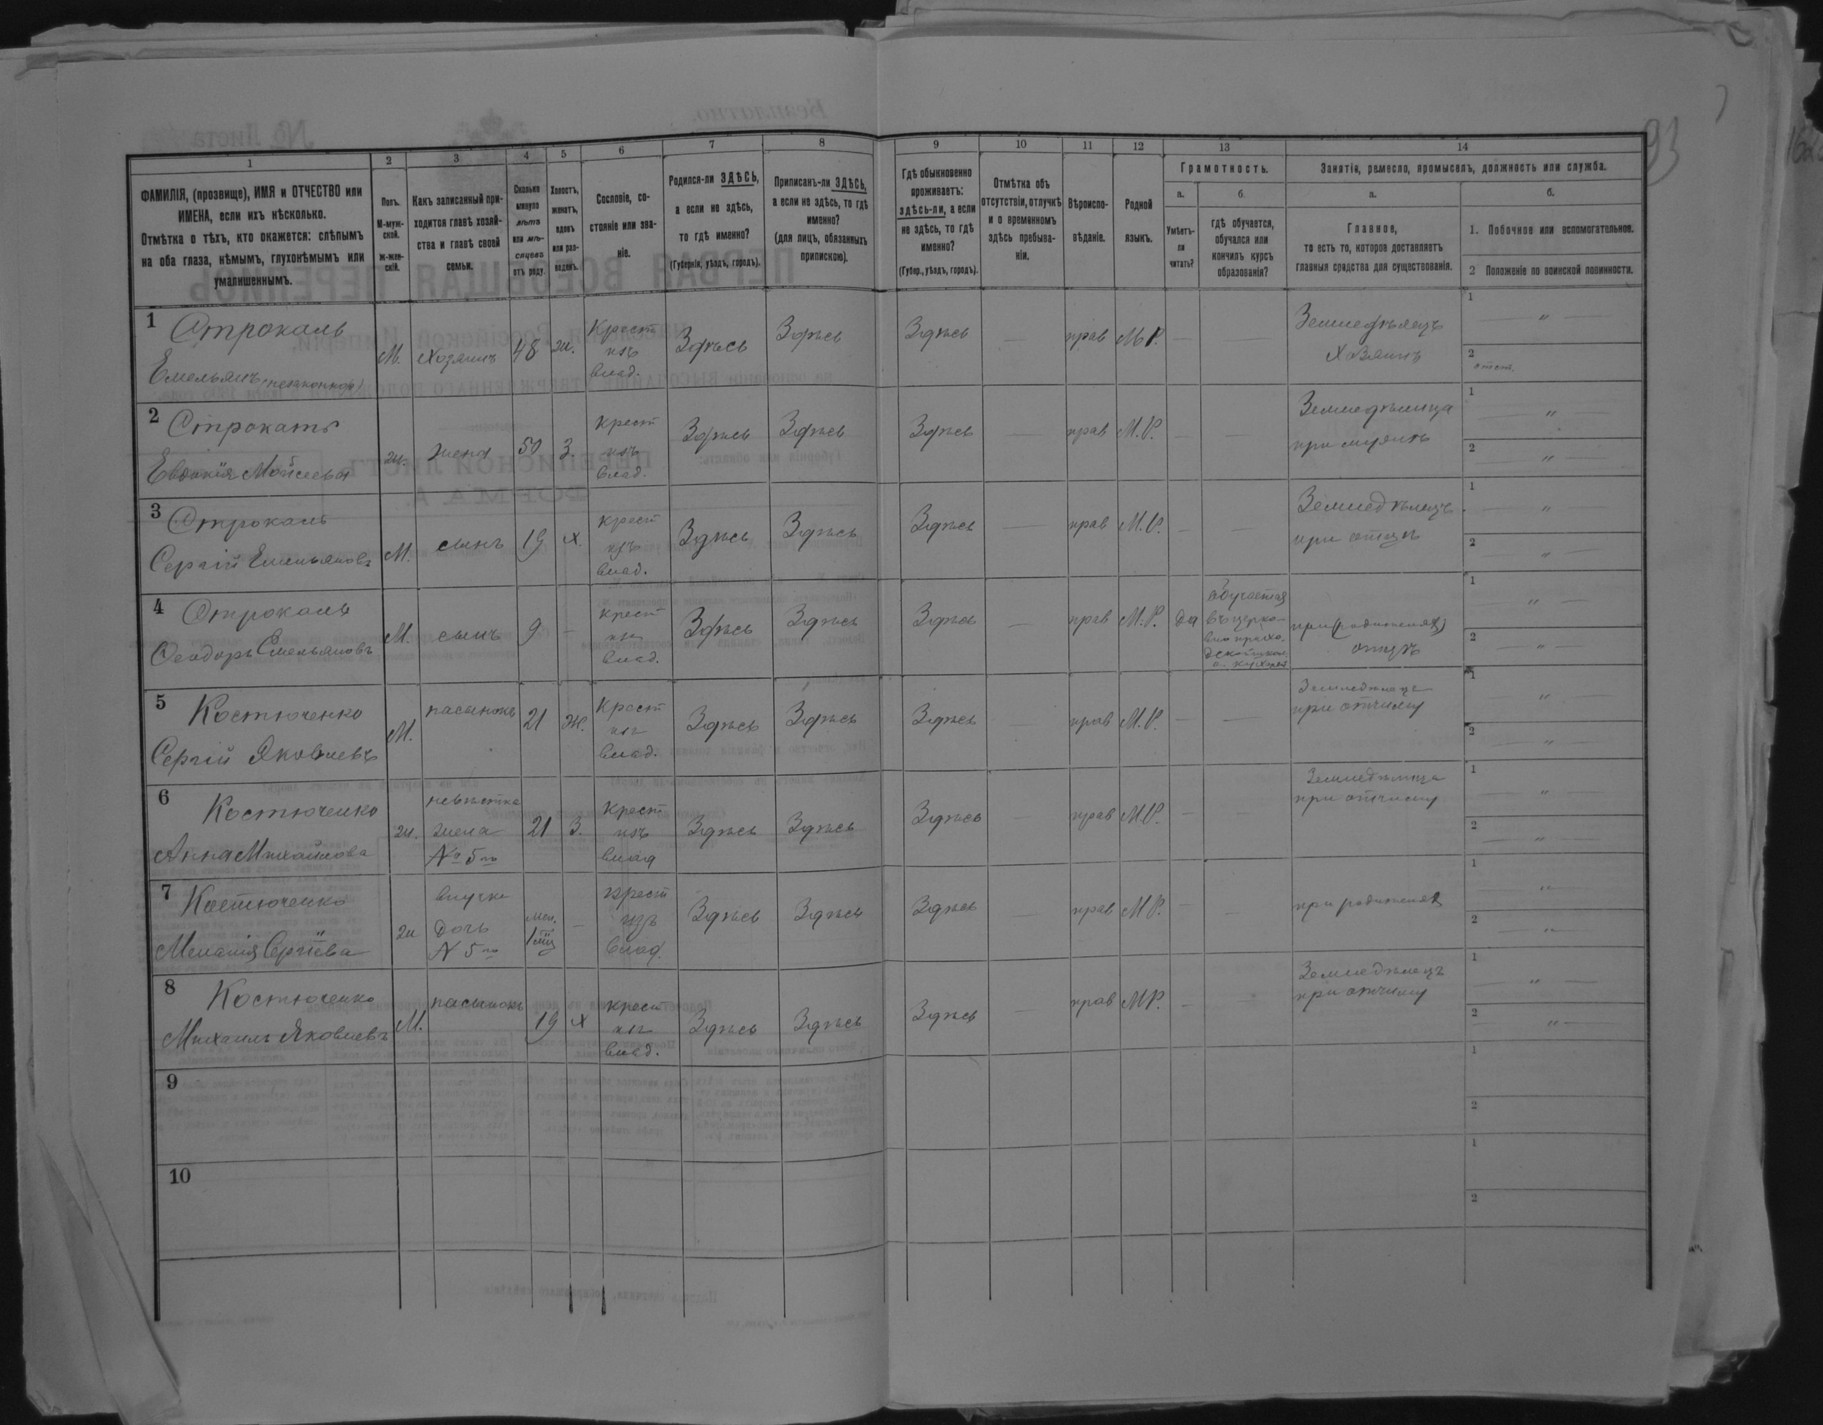 93
1 2 3 4 5 6 7 8 9 10 11 12 13 14
ФАМИЛІЯ, (прозвище), ИМЯ и ОТЧЕСТВО или
ИМЕНА, если ихъ нѣсколько.
Отмѣтка о тѣхъ, кто окажется: слѣпымъ
на оба глаза, нѣмымъ, глухонѣмымъ или
умалишеннымъ.
Полъ.
М-муж-
ской.
ж-жен-
скій.
Какъ записанный при-
ходится главѣ хозяй-
ства и главѣ своей
семьи.
Сколько
минуло
лѣтъ
или мѣ-
сяцевъ
отъ роду.
Холостъ,
женатъ,
вдовъ
или раз-
веденъ.
Сословіе, со-
стояніе или зва-
ніе.
Родился-ли ЗДѢСЬ,
а если не здѣсь,
то гдѣ именно?
(Губернія, уѣздъ, городъ).
Приписанъ-ли ЗДѢСЬ,
а если не здѣсь, то гдѣ
именно?
(для лицъ, обязанныхъ
припискою).
Гдѣ обыкновенно
проживаетъ:
здѣсь-ли, а если
не здѣсь, то гдѣ
именно?
(Губер., уѣздъ, городъ).
Отмѣтка объ
отсутствіи, отлучкѣ
и о временномъ
здѣсь пребыва-
ніи.
Вѣроиспо-
вѣданіе.
Родной
языкъ.
Грамотность.
а.
Умѣетъ-
ли
читать?
б.
гдѣ обучается,
обучался или
кончилъ курсъ
образованія?
Занятія, ремесло, промыселъ, должность или служба.
а.
Главное,
то есть то, которое доставляетъ
главныя средства для существованія.
б.
1. Побочное или вспомогательное.
2 Положеніе по воинской повинности.
1 Строкань
Емельянъ
М. Хозяинъ 48 ж. Крест изъ влад. Здѣсь Здѣсь Здѣсь — прав М.Р.
Земледѣлецъ
Хозяинъ
1 — " —
2
2 Строкань
Евдокія Мойсеева
ж. жена 50 З. крест изъ влад. Здѣсь Здѣсь Здѣсь — прав М.Р. — —
Земледѣлица
при мужѣ
1 — " —
2 — " —
3 Строкань
Сергій Емельяновъ
М. сынъ 19 Х. крест изъ влад. Здѣсь Здѣсь Здѣсь — прав М.Р. — —
Земледѣлецъ
при отцѣ
1 — " —
2 — " —
4 Строкань
Ѳеодоръ Емельяновъ
М. сынъ 9 — крест изъ влад. Здѣсь Здѣсь Здѣсь — прав М.Р. да
обучается
въ церко-
при (родителяхъ)
отцѣ
1 — " —
2 — " —
5 Костюченко
Сергій Яковлевъ
М. пасынокъ 21 Ж. Крест изъ влад. Здѣсь Здѣсь Здѣсь — прав М.Р. — —
Земледѣлецъ
при отчиму
1 — " —
2 — " —
6 Костюченко
Анна Михайлова
ж. невѣстка жена № 5го 21 З. Крест изъ влад Здѣсь Здѣсь Здѣсь — прав М.Р. — —
Земледѣлица
при отчиму
1 — " —
2 — " —
7 Костюченко
Меланія Сергіева
ж внучка дочь N 5го 1 — крест изъ влад. Здѣсь Здѣсь Здѣсь — прав М.Р. — —
при родителях
1 — " —
2 — " —
8 Костюченко
Михаилъ Яковлевъ
М. пасынокъ 19 Х крест изъ влад. Здѣсь Здѣсь Здѣсь — прав М.Р. — —
Земледѣлецъ
при отчиму
1 — " —
2 — " —
9
1
2
10
1
2